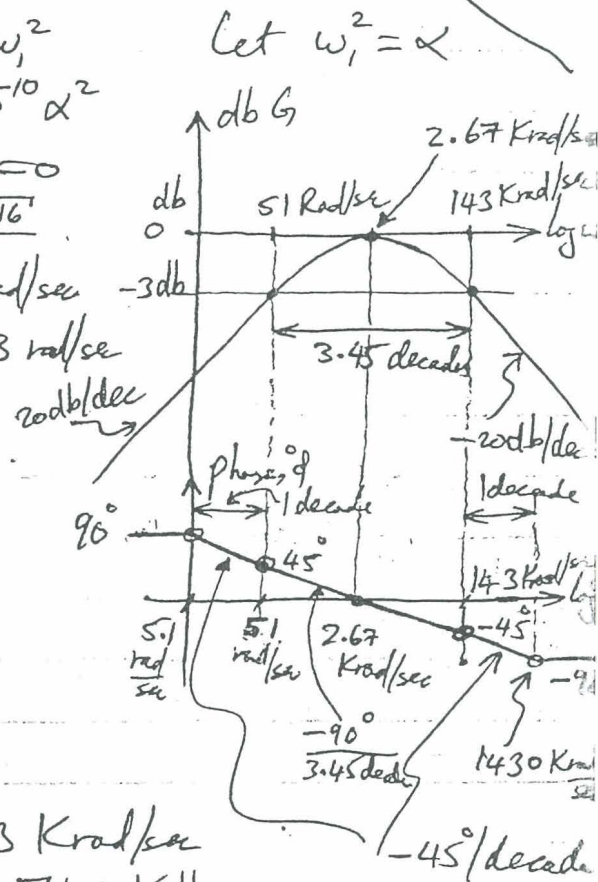 Let ω₁² = α
ω₁²
⁻¹⁰ α²
db G
2.67 Krad/s
=0
16
db
51 Rad/sec
143 Krad/sec
0
log
rad/sec
-3db
3 rad/sec
3.45 decades
20db/dec
-20db/dec
phase,
1 decade
1 decade
90°
45°
143 Krad/s
-45°
5.1
rad
sec
5.1
rad/sec
2.67
Krad/sec
-9
-90°
3.45 deca
1430 Krad
se
3 Krad/sec
-45°/decad